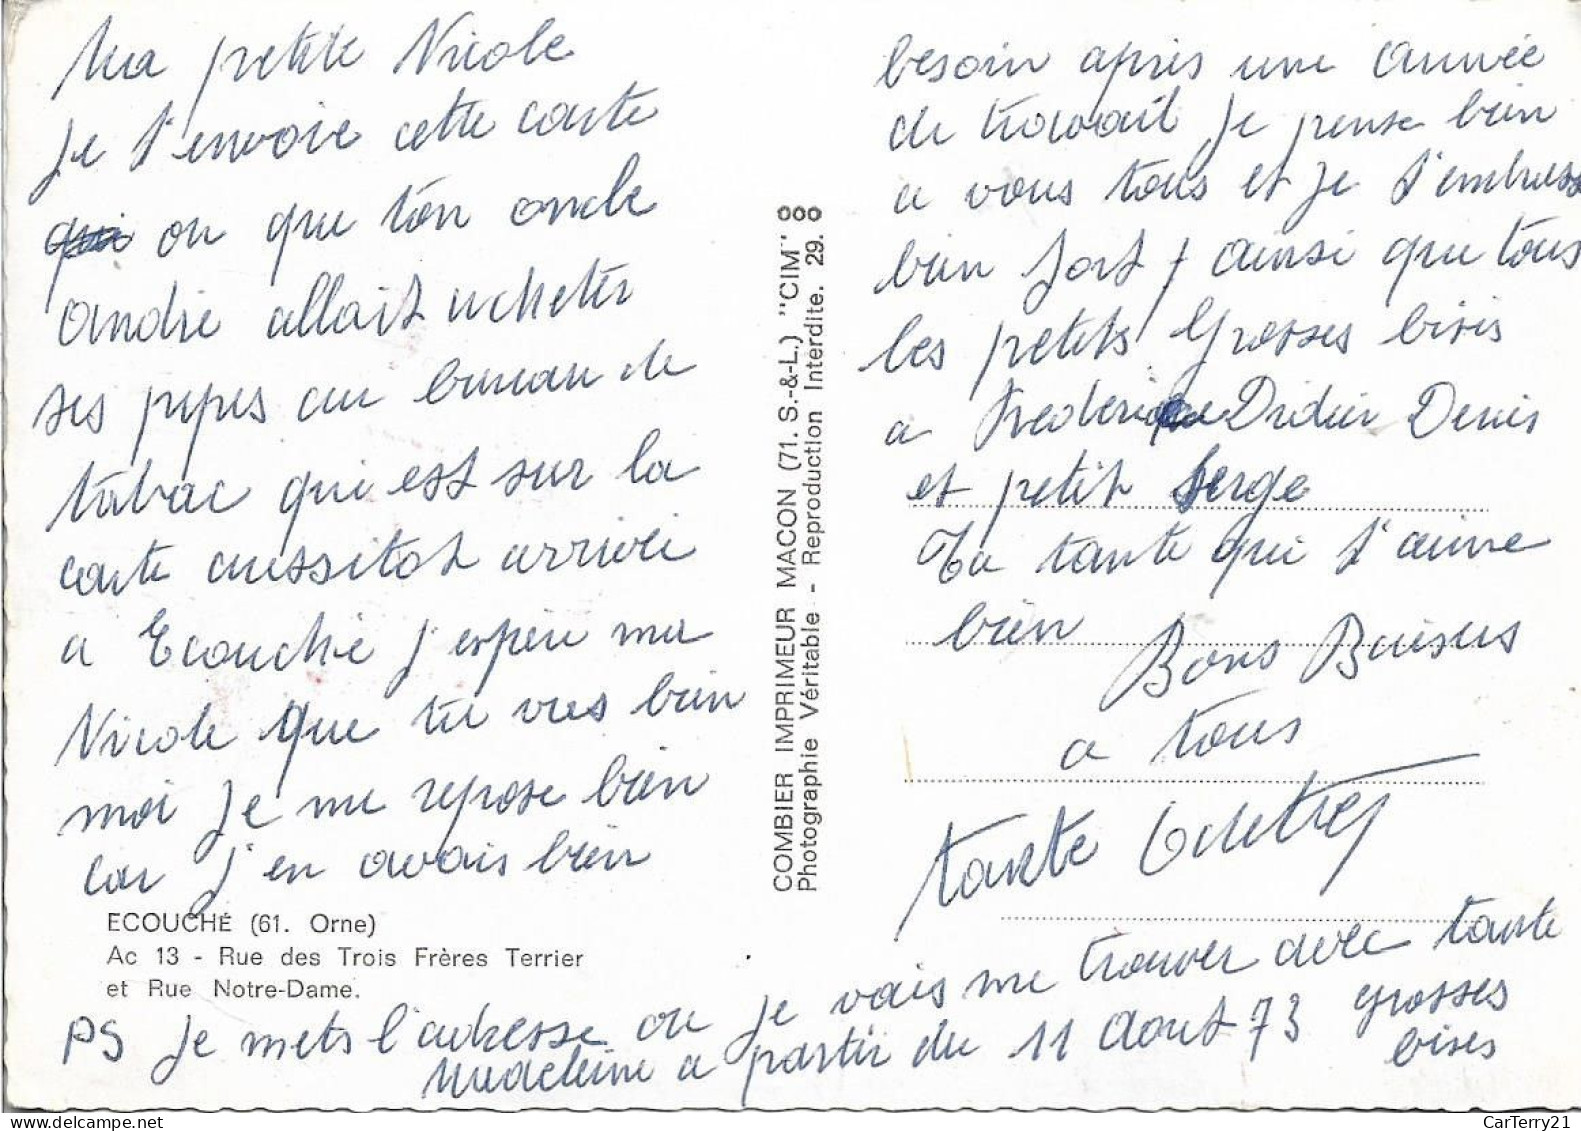 Ma petite Nicole
Je t'envoie cette carte
ou que ton oncle
andre allait acheter
ses pipes au bureau de
tabac qui est sur la
carte aussitot arrivée
a Ecouché j'espère ma
Nicole que tu vas bien
moi je me repose bien
car j'en avais bien
ECOUCHÉ (61. Orne)
Ac 13 - Rue des Trois Frères Terrier
et Rue Notre-Dame.
COMBIER IMPRIMEUR MACON (71. S.-&-L.) "CIM"
Photographie Véritable - Reproduction Interdite. 29.
besoin après une année
de travail je pense bien
a vous tous et je t'embrass
bien fort ainsi que tous
les petits grosses bises
a Frederique Didier Denis
et petit Serge
Ta tante qui t'aime
bien Bons Baisers
a tous
tante
PS je mets l'adresse ou je vais me trouver avec tante
madeleine a partir du 11 Aout 73 grosses
bises
CarTerry21